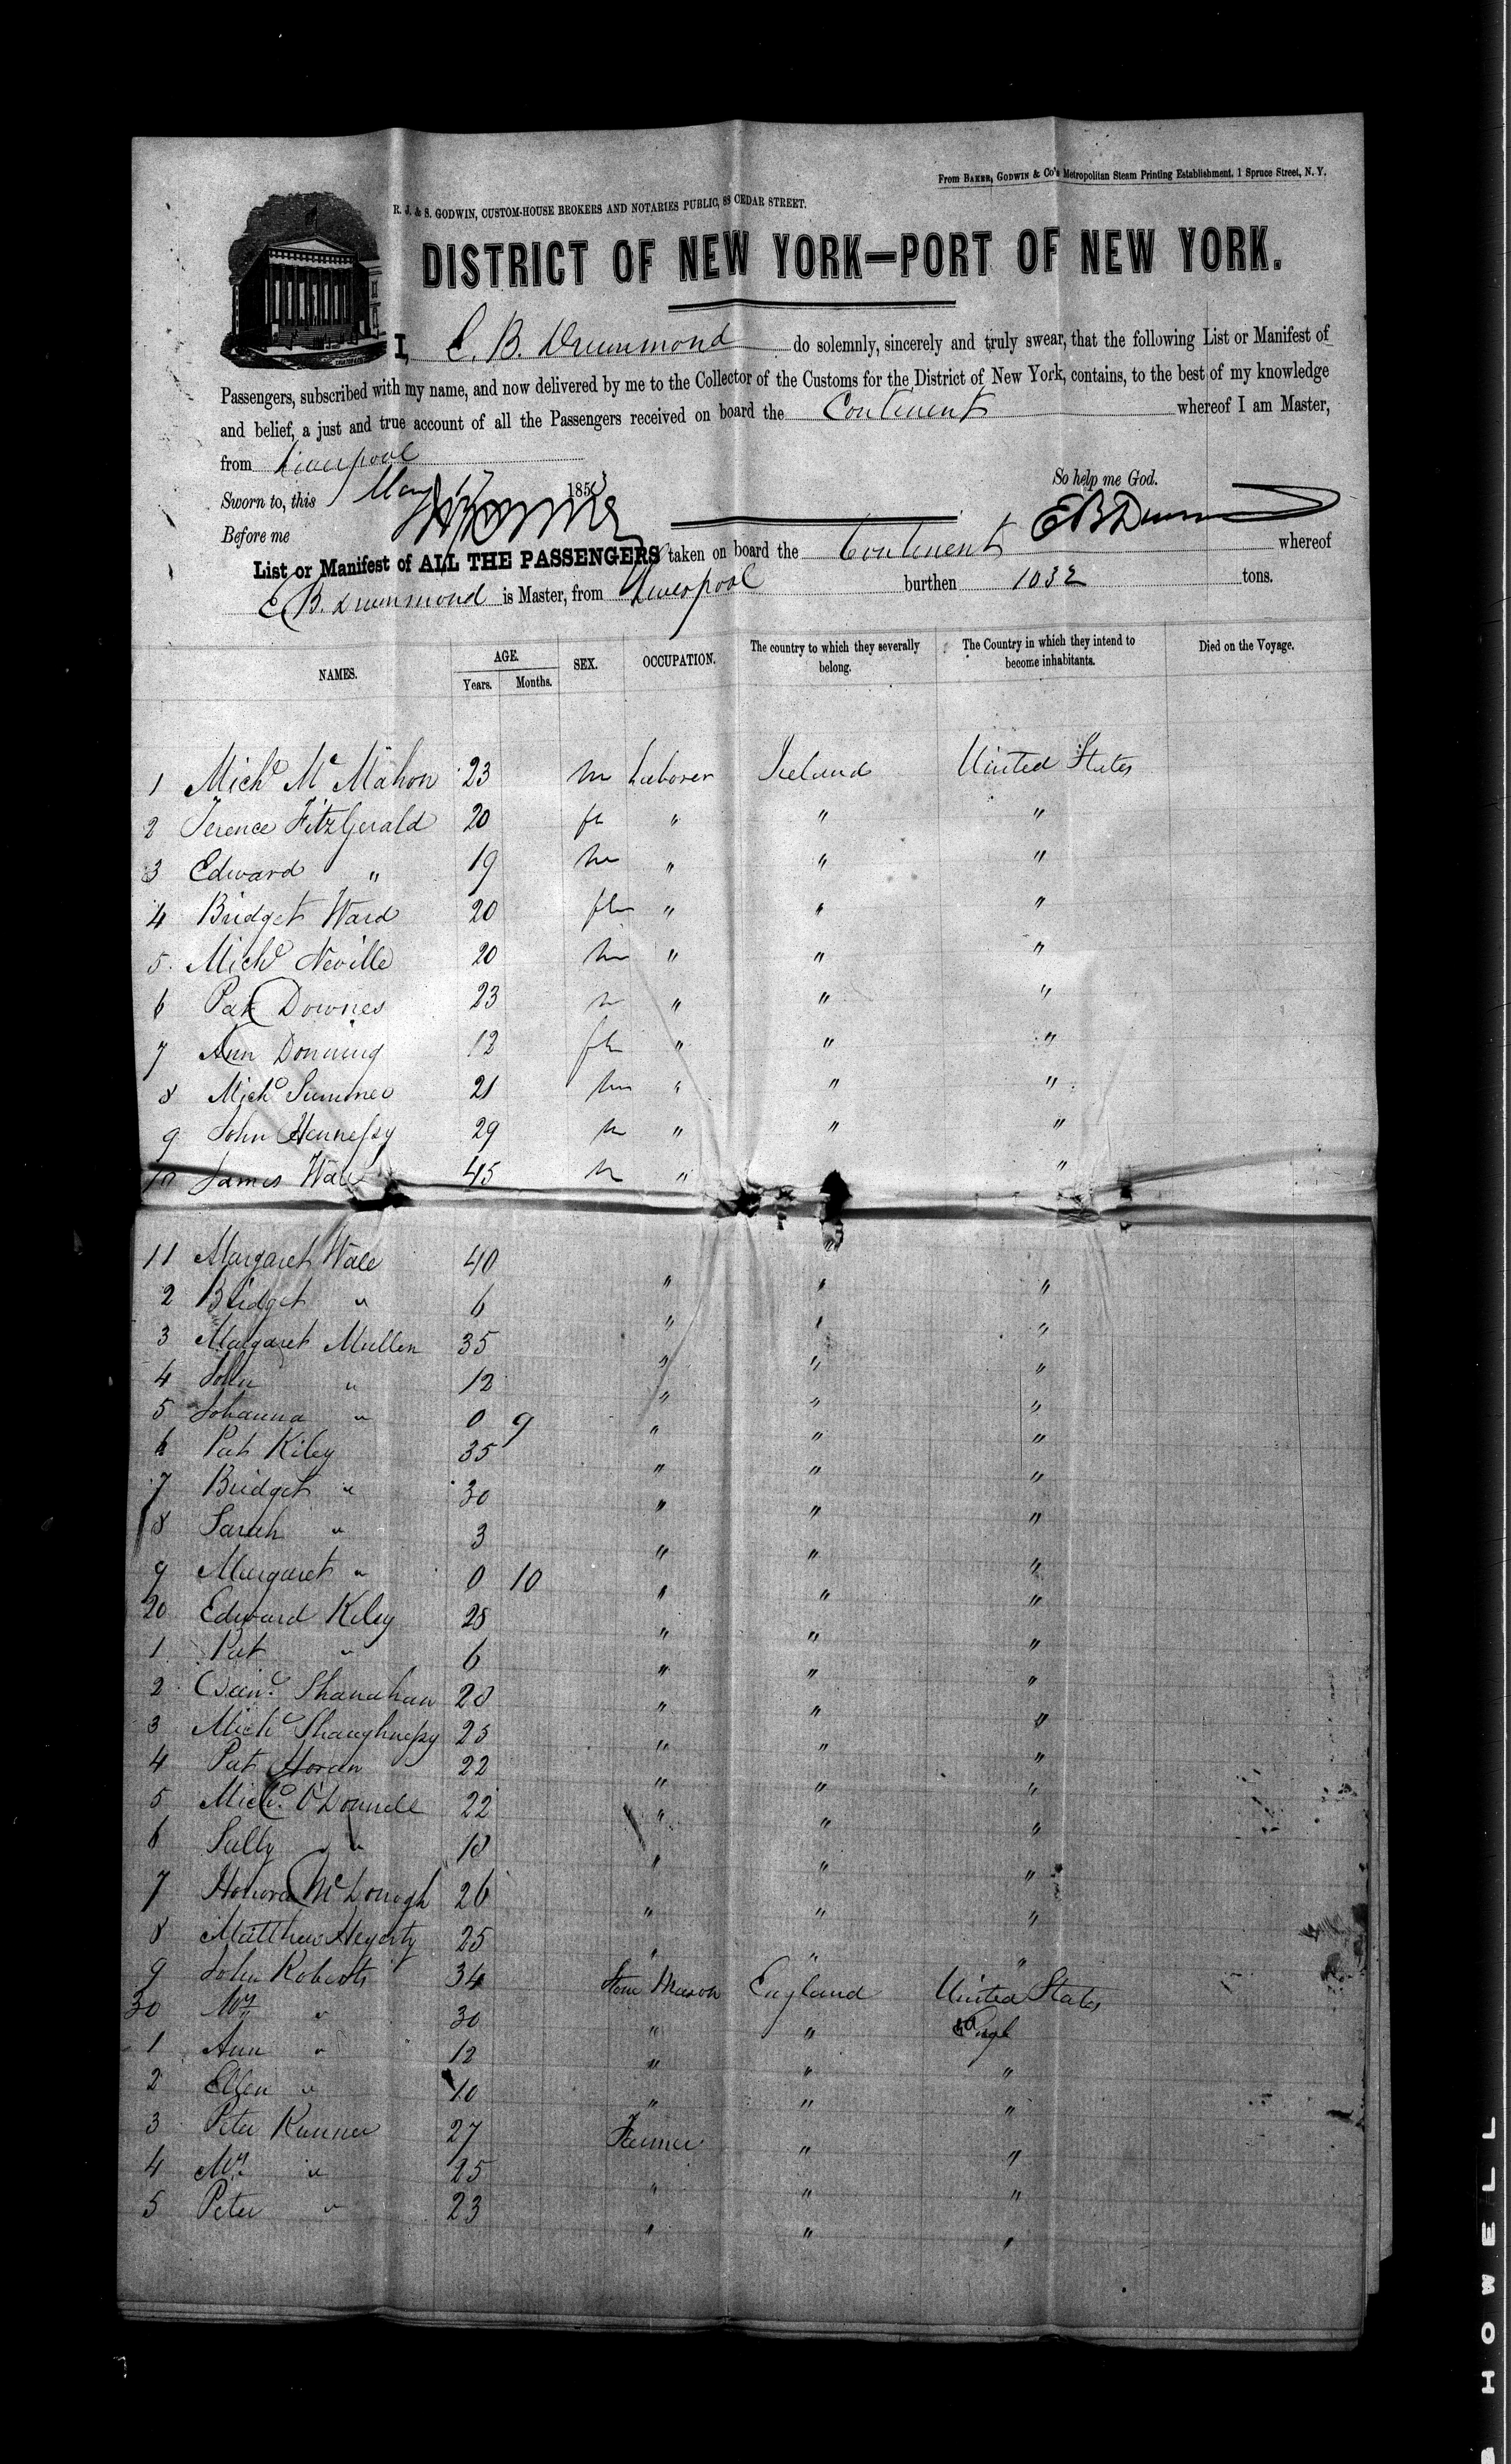 From BAKER, GODWIN & Co's Metropolitan Steam Printing Establishment, 1 Spruce Street, N. Y.
R. J. & S. GODWIN, CUSTOM-HOUSE BROKERS AND NOTARIES PUBLIC, 88 CEDAR STREET.
DISTRICT OF NEW YORK—PORT OF NEW YORK.
I, E. B. Drummond do solemnly, sincerely and truly swear, that the following List or Manifest of
Passengers, subscribed with my name, and now delivered by me to the Collector of the Customs for the District of New York, contains, to the best of my knowledge
and belief, a just and true account of all the Passengers received on board the Continent whereof I am Master,
from Liverpool
So help me God.
Sworn to, this May 17 1853
E B Drummond
Before me
List or Manifest of ALL THE PASSENGERS taken on board the Continent whereof
E. B. Drummond is Master, from Liverpool burthen 1032 tons.
NAMES. AGE. Years. Months. SEX. OCCUPATION. The country to which they severally belong. The Country in which they intend to become inhabitants. Died on the Voyage.
1 Michl McMahon 23 m Laborer Ireland United States
2 Terence FitzGerald 20 fe " " "
3 Edward " 19 m " " "
4 Bridget Ward 20 fe " " "
5. Michl Neville 20 m " " "
6 Pat Downes 23 m " " "
7 Ann Donning 12 fe " " "
8 Michl Sumner 21 m " " "
9 John Hennessy 29 m " " "
10 James Wale 45 m " "
11 Margaret Wale 40 " " "
2 Bridget " 6 " " "
3 Margaret Mullen 35 " " "
4 John " 12 " " "
5 Johanna " 0 9 " " "
6 Pat Kiley 35 " " "
7 Bridget " 30 " " "
8 Sarah " 3 " " "
9 Margaret " 0 10 " " "
20 Edward Kiley 28 " " "
1 Pat " 6 " " "
2 Shanahan 20 " " "
3 Michl Shaughnessy 25 " " "
4 Pat Horan 22 " " "
5 Michl. O'Donnell 22 " " "
6 Sally " 18 " " "
7 Honora McDonogh 26 " " "
8 Matthew Hegerty 25 " " "
9 John Roberts 34 Stone Mason England United States
30 " 30 " "
1 Ann " 12 " " "
2 Ellen " 10 " " "
3 Peter 27 Farmer " "
4 " 25 " " "
5 Peter " 23 " " "
HOWELL